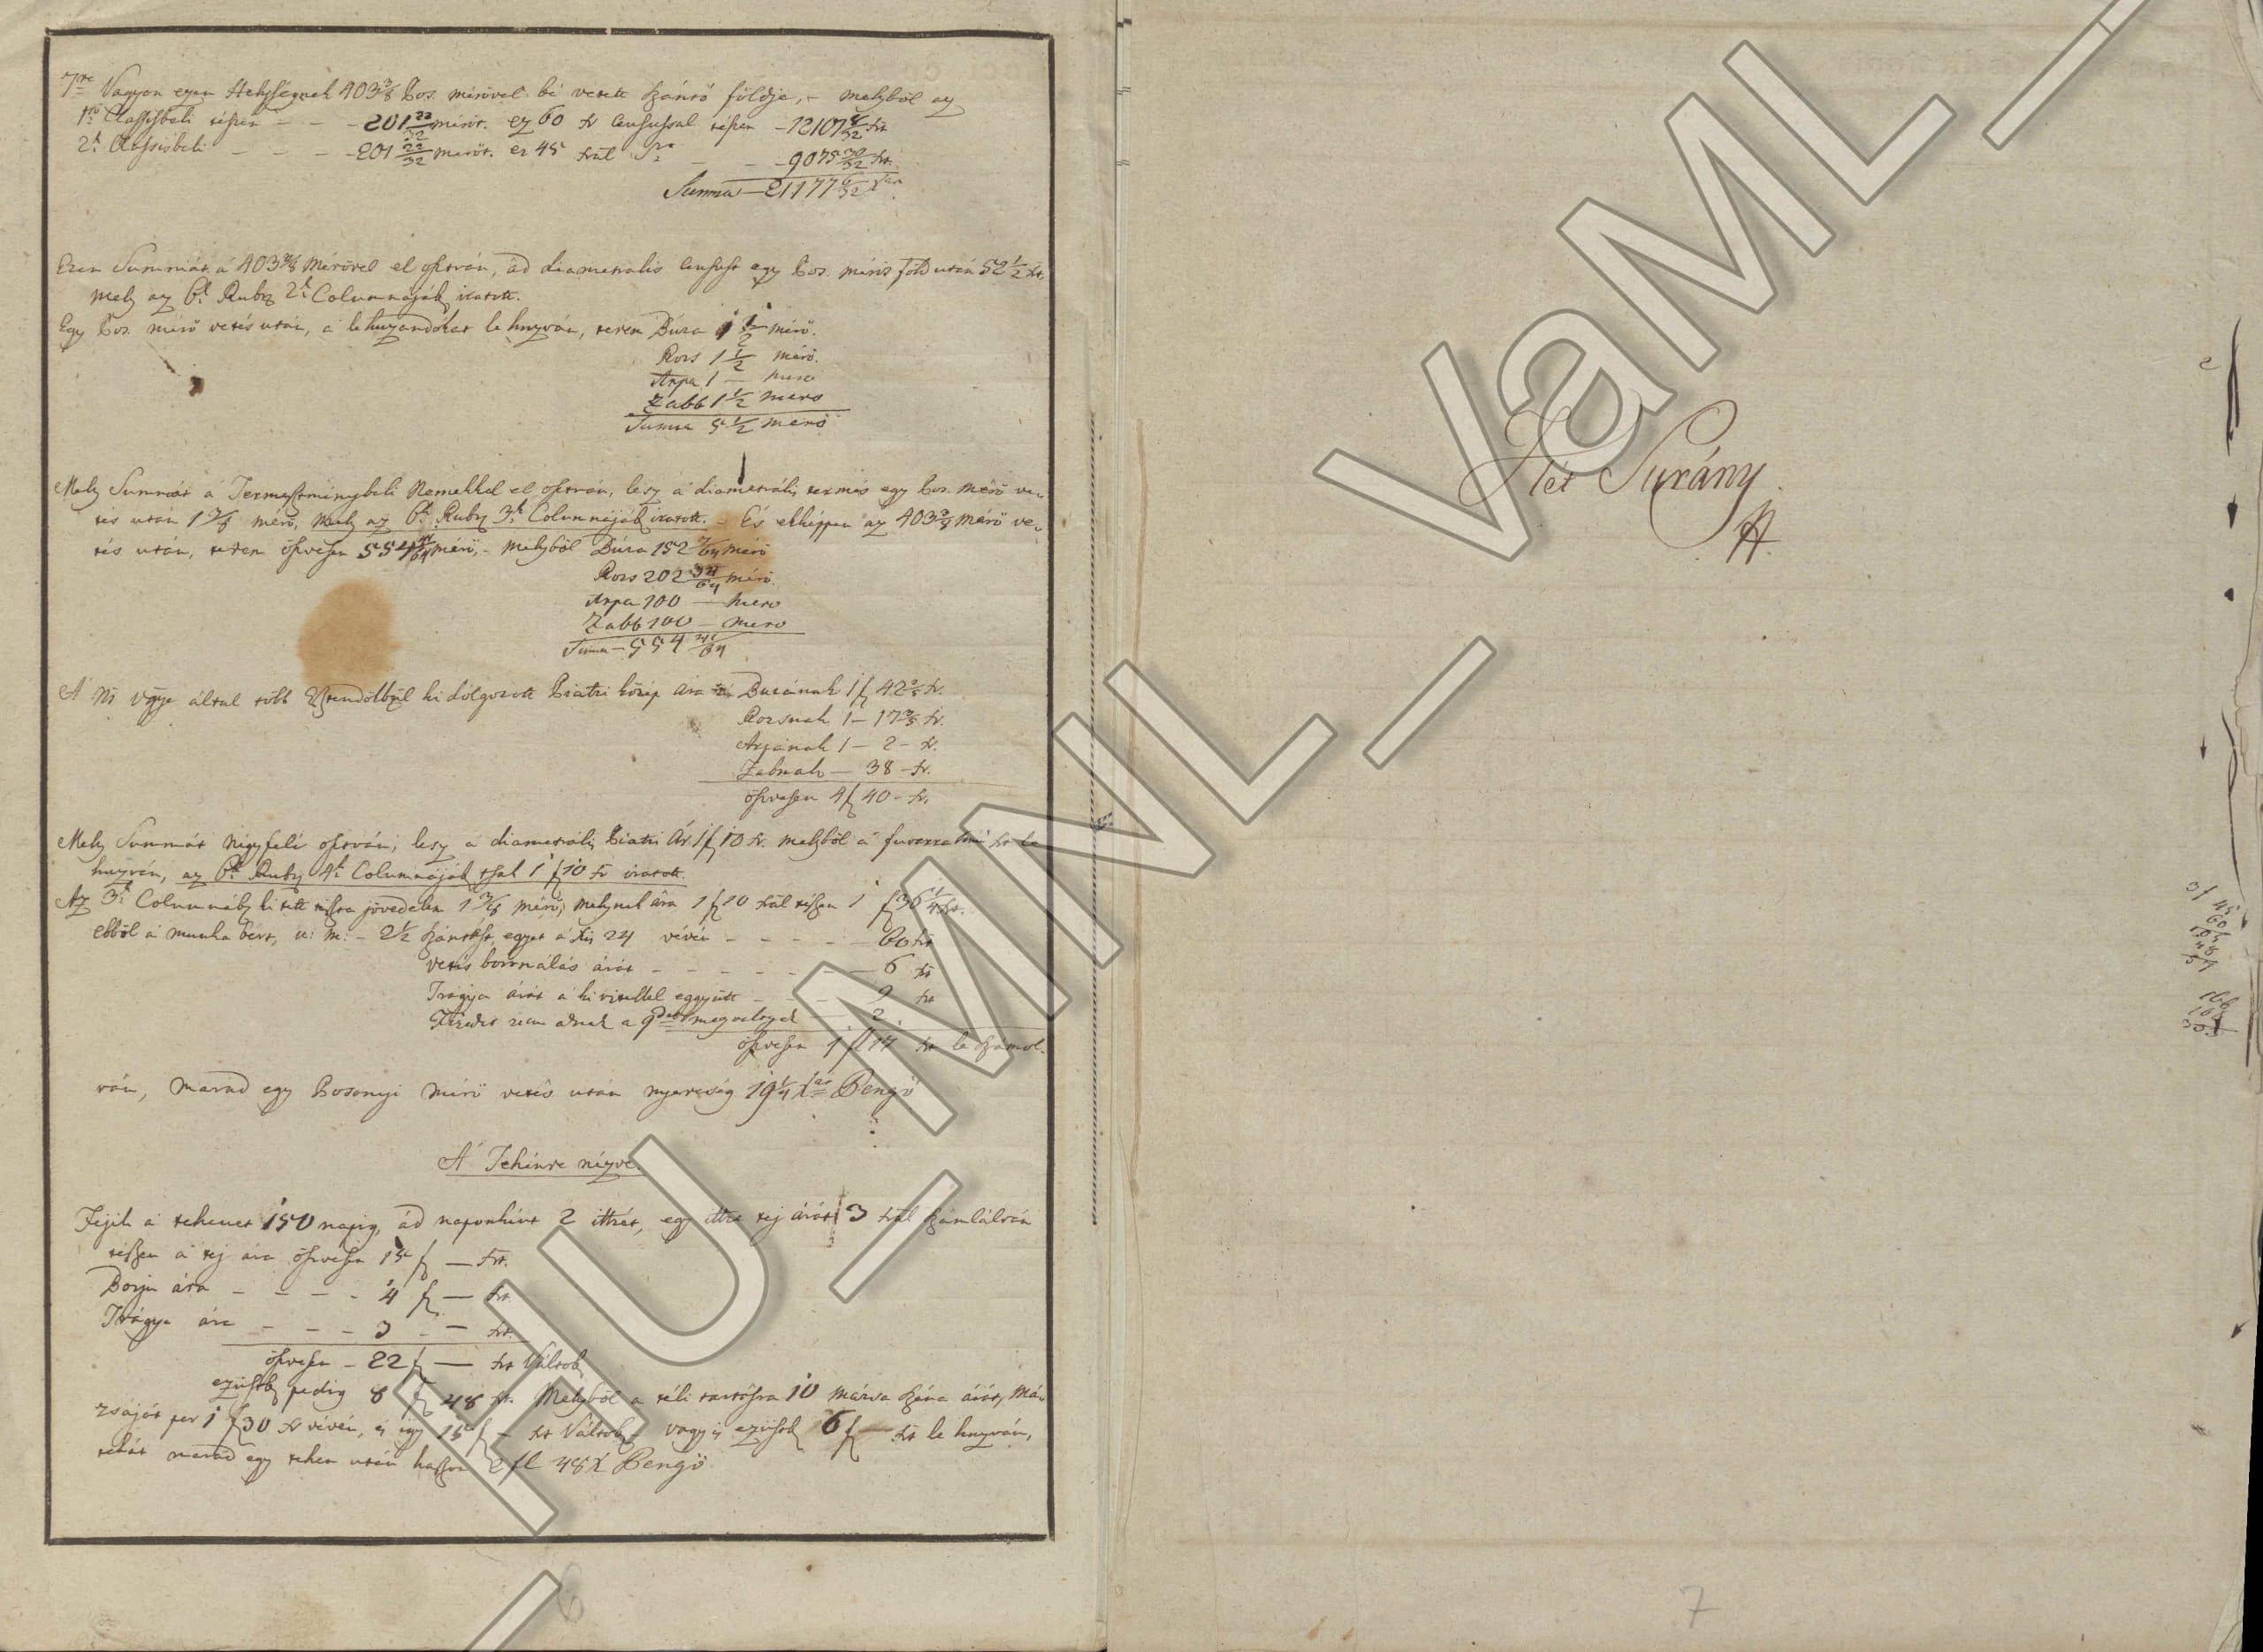 7re Vagyon ezen Helységnek 403 3/8 Pos. mérővel bé vetett szántó földje, - melyből az
1ső Classisbeli tészen - - - 201 22/32 mérőt. ez 60 xr Censussal tészen - 12101 8/32 xrt
2k Classisbeli - - - - 201 22/32 mérőt. ez 45 xrál - - - 9075 30/32 xr.
Summa - 21177 6/32
Ezen Summát a 403 3/8 Mérővel el osztván, ád diametralis Census egy Pos. mérős föld után 52 1/2 xr.
mely az 6k Rubr 2k Columnájáb iratott.
Egy Pos. mérő vetés után, a lehuzandókat le huzván, terem Búza 1 1/2 mérő.
Rozs 1 1/2 mérő.
Árpa 1 - mérő
Zabb 1 1/2 mérő
Summa 5 1/2 mérő
Mely Summát a Termesztménybeli Nemekkel el osztván, lesz a diametrális termés egy Pos. mérő ve-
tés után 1 3/8 mérő, mely az 6k Rubr 3k Columnájáb iratott. - És ekképpen az 403 3/8 mérő ve-
tés után, terem öszvesen 554 41/64 mérő, - melyből Búza 152 7/64 mérő
Rozs 202 34/64 mérő.
Árpa 100 - mérő
Zabb 100 - mérő
Summa - 554 41/64
A Ns Vgye által több Esztendőkbül ki dolgozott Piatzi közép ára Buzának 1 f 42 2/5 xr.
Rozsnak 1 - 17 3/5 xr.
Árpának 1 - 2 - xr.
Zabnak - 38 - xr.
öszvesen 4 f 40 - xr.
Mely Summát négyfelé osztván, lesz a diametrális Piatzi Ár 1 f 10 xr. melyből a fuvart le
huzván, az 6k Rubr 4k Columnájáb tsak 1 f 10 xr iratott.
Az 3k Columnáb ki tett tiszta jövedelem 1 3/8 mérő, melynek ára 1 f 10 xrál tészen 1 f 36 1/4 xr.
ebből a munka bért, u: m: - 2 1/2 szántást, egyet a xis 24 vévén - - - - - 60 xrt
vetés boronálás árát - - - - - - - 6 xr
Trágya árát a ki vitellel együtt - - - 9 xr
2
öszvesen 1 fl 17 xr le számol-
ván, marad egy Posonyi mérő vetés után nyereség 19 1/4 Xas Pengő
A' Tehénre nézve.
Fejik a tehenet 150 napig, ád naponként 2 ittzét, egy ittze tej árát 3 xrál számlálván
tészen a tej ára öszvesen 15 f - xr.
Borju ára - - - - 4 f - xr.
Trágya ára - - - 3 - - xr.
öszvesen - 22 f - xr Váltób
ezüstb pedig 8 f 48 xr. Melyből a téli tartásra 10 mázsa széna árát, má-
zsáját per 1 f 30 xr vévén, és igy 15 f - xr Váltob - vagyis ezüstb 6 f - xr le huzván,
tehát marad egy tehen után haszon 2 fl 48 X Pengő
6
HU_MNL_VaML_
Hét Surány
7